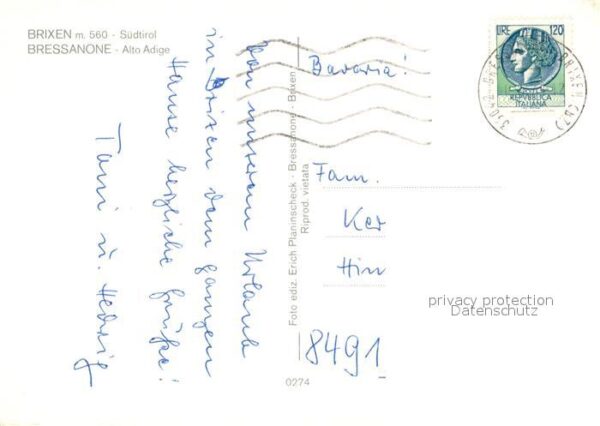 BRIXEN m. 560 - Südtirol
BRESSANONE - Alto Adige
Von unserem Urlaub
in Brixen dem ganzen
Hause herzliche Grüße!
Toni u. Hedwig
Foto ediz. Erich Planinscheck - Bressanone - Brixen
Riprod. vietata
0274
LIRE 120
REPVBBLICA
ITALIANA
39042 BRIXEN (BZ)
Bavaria!
Fam.
Ker
Hin
8491
privacy protection
Datenschutz